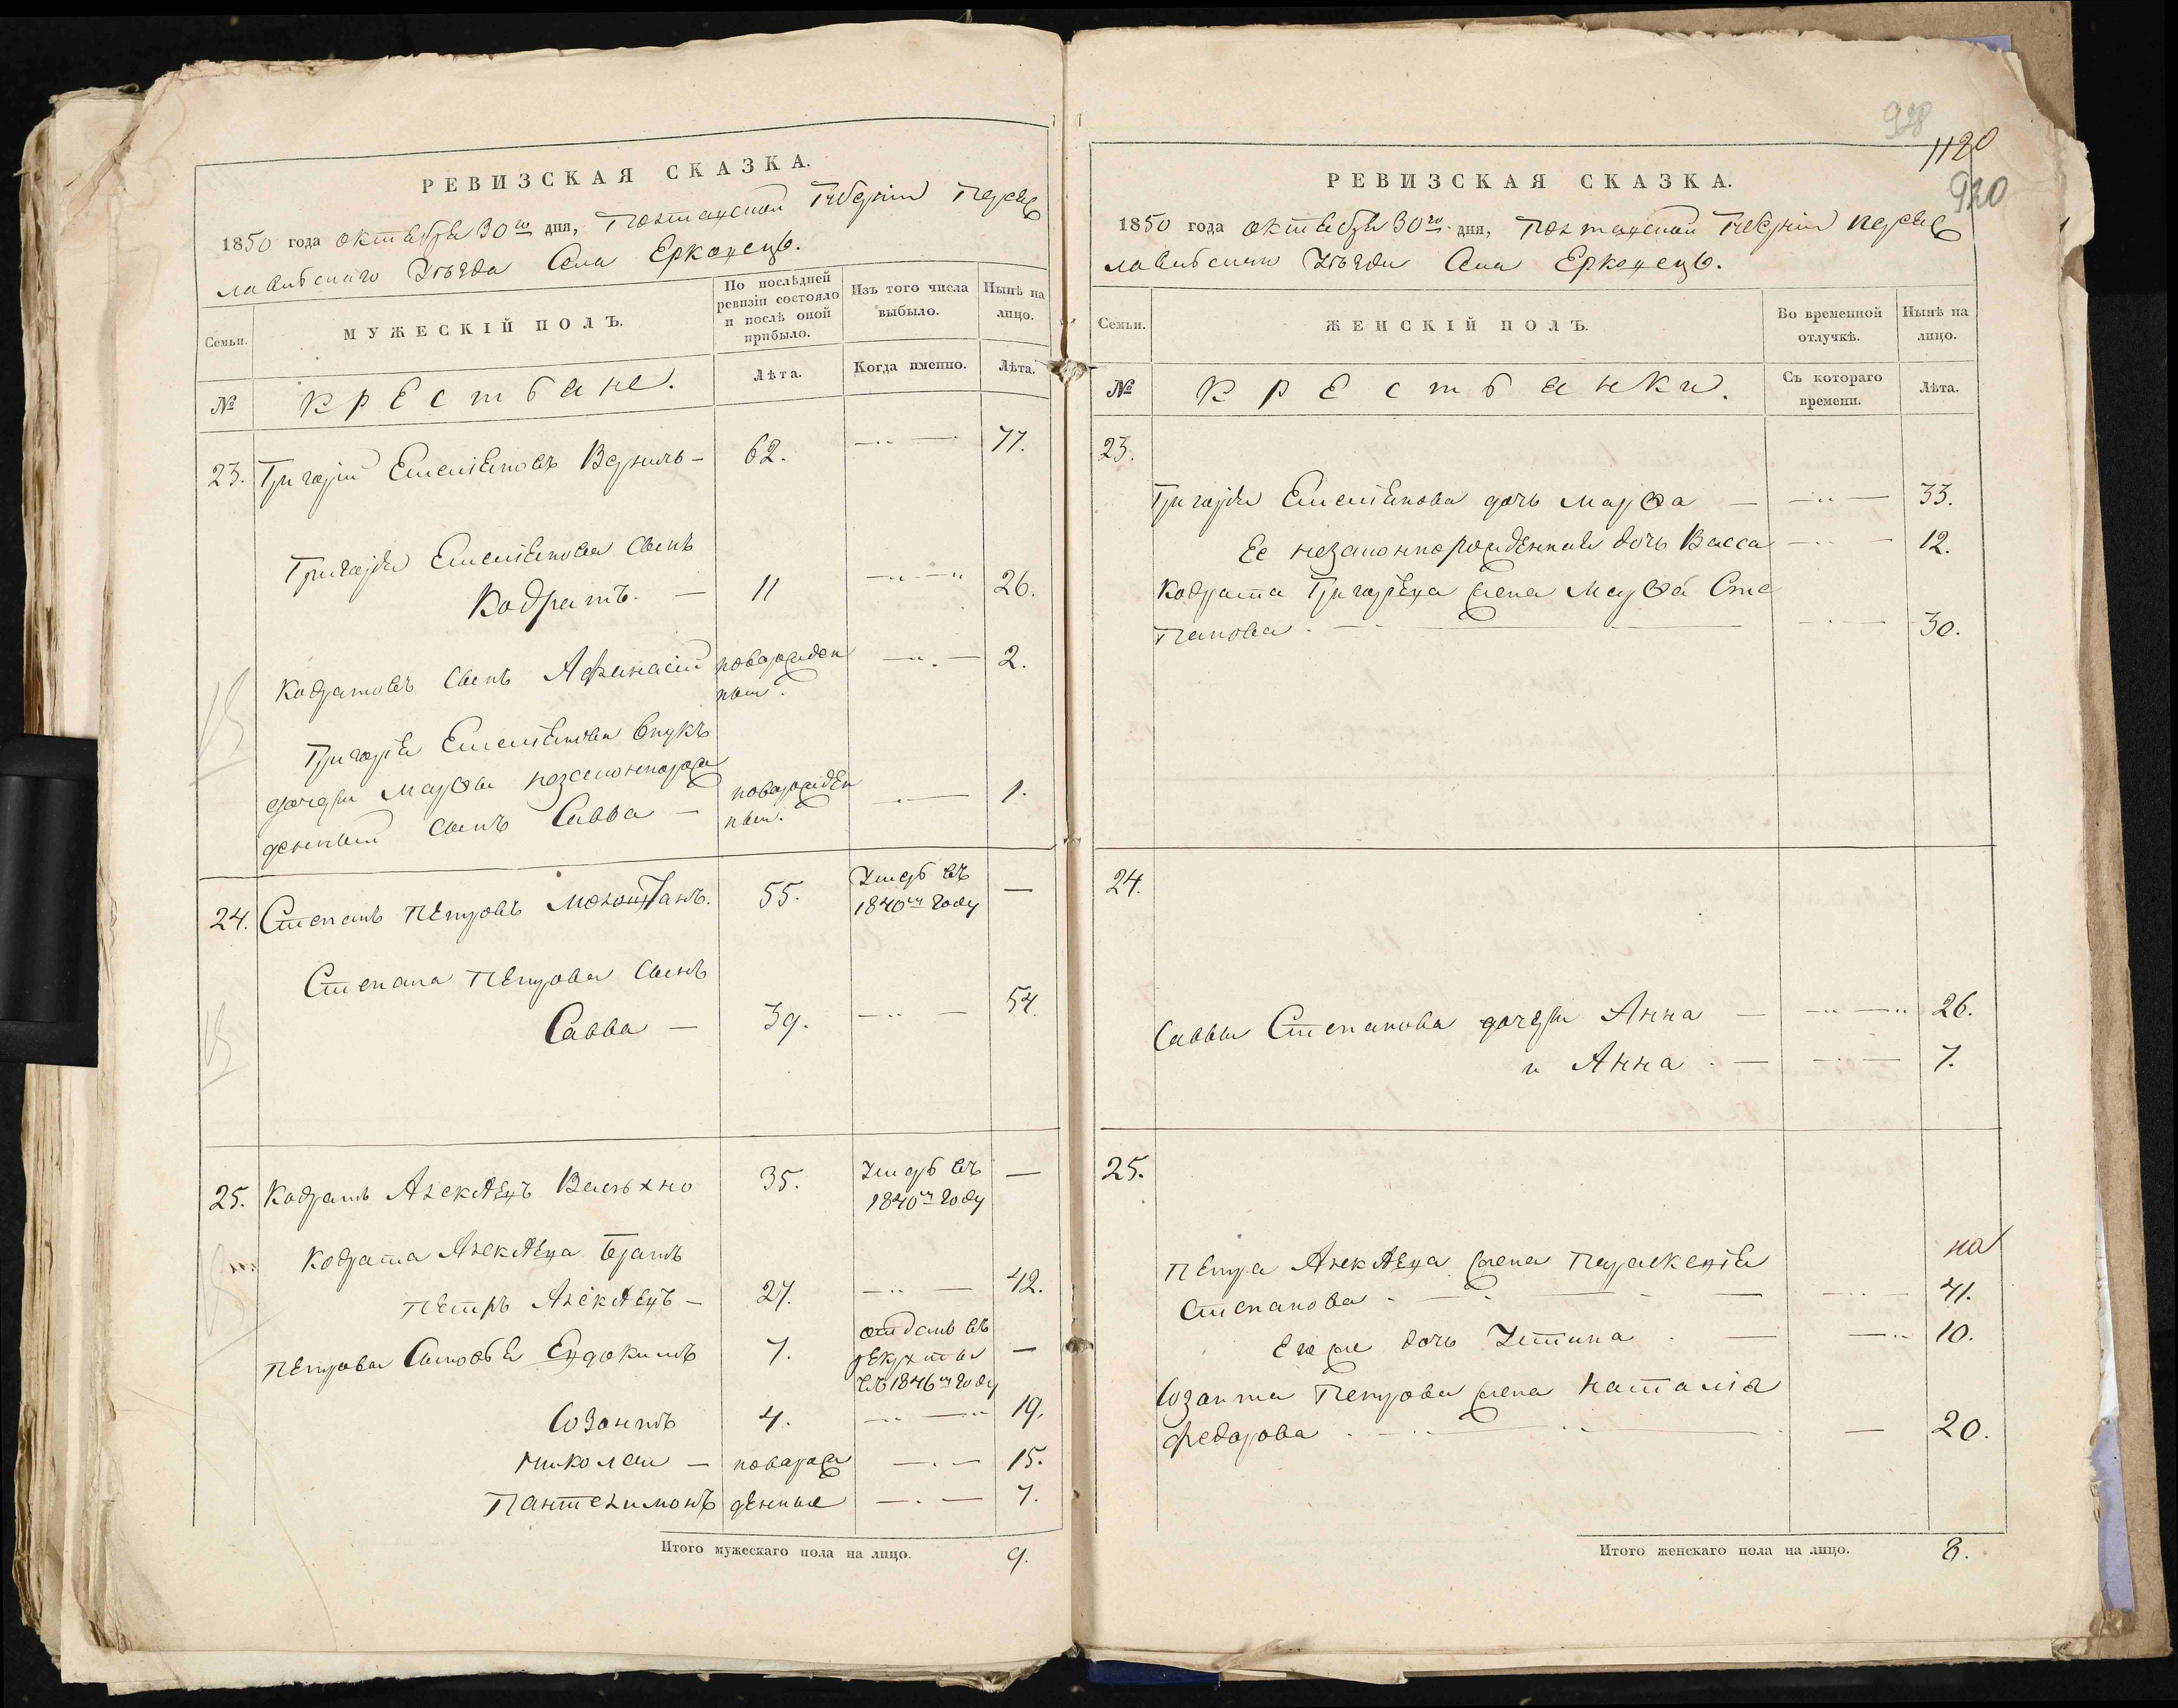 РЕВИЗСКАЯ СКАЗКА.
1850 года октября 30го дня, Полтавской Губерніи Переяс
лавскаго Уѣзда Села Ерковецъ.
Семьи.
МУЖЕСКІЙ ПОЛЪ.
По послѣдней ревизіи состояло и послѣ оной прибыло.
Изъ того числа выбыло.
Нынѣ на лицо.
№
Крестьяне.
Лѣта.
Когда именно.
Лѣта.
23. Григорій Емельяновъ 62. 77.
Григорія Емельянова сынъ
Кодратъ. 11 26.
Кодратовъ сынъ Афанасій новорожден 2.
ный
Григорія Емельянова внукъ
дочери Марфы незаконнорож
денный сынъ Савва новорожден 1.
ный.
24. Степанъ Петровъ 55. Умеръ въ —
1840мъ году
Степана Петрова сынъ
Савва — 39. 54.
25. Кодратъ Алексѣевъ Васьхно 35. Умеръ въ —
1840мъ году
Кодрата Алексѣева братъ
Петръ Алексѣевъ — 27. 42.
Петрова сыновья Евдокимъ 7. отданъ въ —
рекруты
въ 1846мъ году
Созонтъ 4. 19.
Николай — новорож 15.
Пантелимонъ денные 7.
Итого мужескаго пола на лицо. 9.
928
1120
920
РЕВИЗСКАЯ СКАЗКА.
1850 года октября 30го дня, Полтавской Губерніи Переяс
лавскаго Уѣзда Села Ерковецъ.
Семьи.
ЖЕНСКІЙ ПОЛЪ.
Во временной отлучкѣ.
Нынѣ на лицо.
№
Крестьянки.
Съ котораго времени.
Лѣта.
23.
Григорія Емельянова дочь Марфа — 33.
Ее незаконнорожденная дочь Васса 12.
Кодрата Григорьева жена Марфа Сте
панова 30.
24.
Саввы Степанова дочери Анна — 26.
и Анна — 7.
25.
Петра Алексѣева жена Параскевія
Степанова 41.
Его же дочь Устина 10.
Созонта Петрова жена Наталія
Федорова 20.
Итого женскаго пола на лицо. 8.